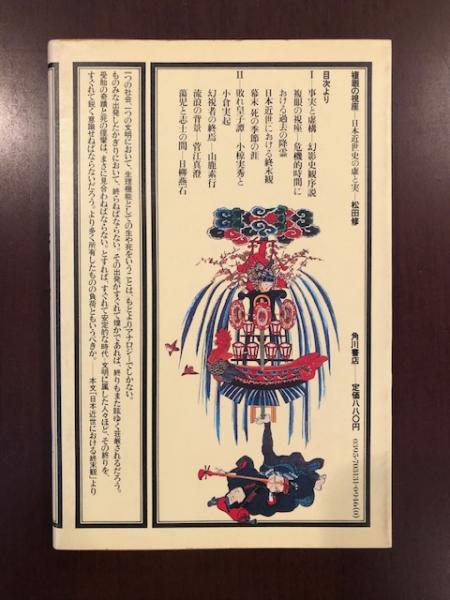 複眼の視座――日本近世史の虚と実――松田修
目次より
Ⅰ 事実と虚構――幻影史観序説
複眼の視座――危機的時間に
おける過去の降霊
日本近世における終末観
幕末・死の季節の涯
Ⅱ 敗れ皇子譚――小椋実秀と
小倉実起
幻視者の終焉――山鹿素行
流浪の背景――菅江真澄
蕩児と志士の間――日柳燕石
角川書店 定価八八〇円
0395-703131-0946(0)
一つの社会、一つの文明において、生理機能としての生や死をいうことは、もとよりアナロジーでしかない。
ものみな出発したかぎりにおいて、終らねばならない。その出発がすぐれて僥かであれば、終りもまた眩ゆく荘厳されるだろう。
受胎の奇蹟と死の侵攣は、まさに見合わねばならない。とすれば、すぐれて安定的な時代、文明に属した人々ほど、その終りを、
すぐれて鋭く意識せねばならないだろう。より多く所有したものの負荷ともいうべきか。――本文「日本近世における終末観」より